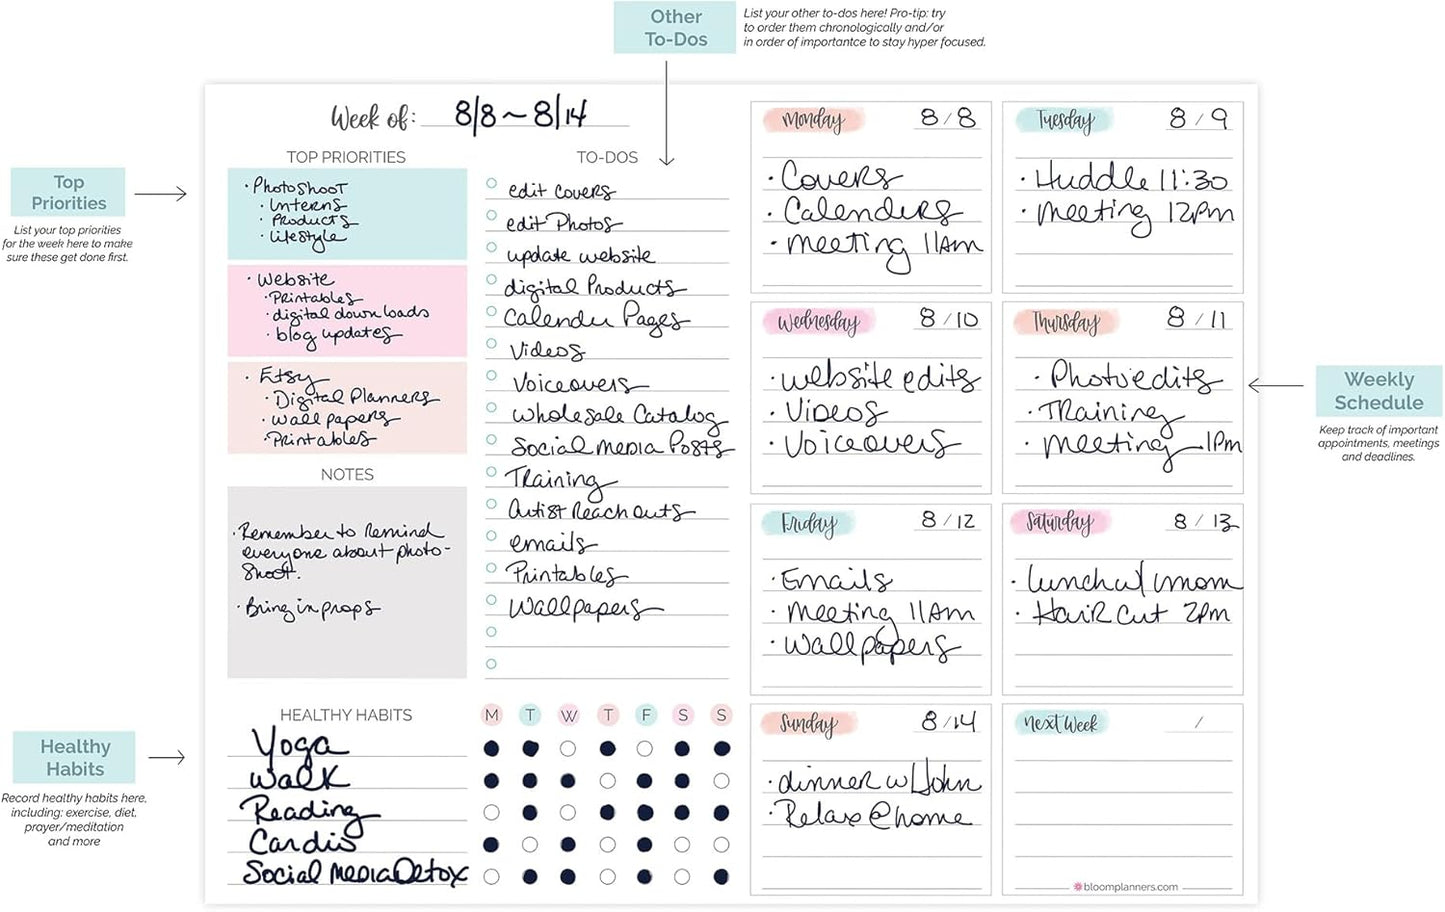 Other
To-Dos
List your other to-dos here! Pro-tip: try
to order them chronologically and/or
in order of importantce to stay hyper focused.
Top
Priorities
List your top priorities
for the week here to make
sure these get done first.
Healthy
Habits
Record healthy habits here,
including: exercise, diet,
prayer/meditation
and more
Weekly
Schedule
Keep track of important
appointments, meetings
and deadlines.
Week of: 8/8 ~ 8/14
TOP PRIORITIES
· Photoshoot
· Interns
· Products
· Lifestyle
· Website
· Printables
· digital downloads
· blog updates
· Etsy
· Digital Planners
· Wallpapers
· Printables
NOTES
· Remember to Remind
everyone about photo-
shoot.
· Bring in props
TO-DOS
edit covers
edit Photos
update website
digital Products
Calender Pages
Videos
Voiceovers
Wholesale Catalog
Social media Posts
Training
Artist Reach outs
emails
Printables
Wallpapers
HEALTHY HABITS M T W T F S S
Yoga
Walk
Reading
Cardio
Social Media Detox
Monday 8/8
· Covers
· Calenders
· meeting 11Am
Tuesday 8/9
· Huddle 11:30
· meeting 12pm
Wednesday 8/10
· website edits
· Videos
· Voiceovers
Thursday 8/11
· Photo edits
· Training
· meeting 1pm
Friday 8/12
· Emails
· meeting 11Am
· Wallpapers
Saturday 8/13
· lunch w/ mom
· Hair Cut 2pm
Sunday 8/14
· dinner w/ John
· Relax @ home
Next Week /
bloomplanners.com